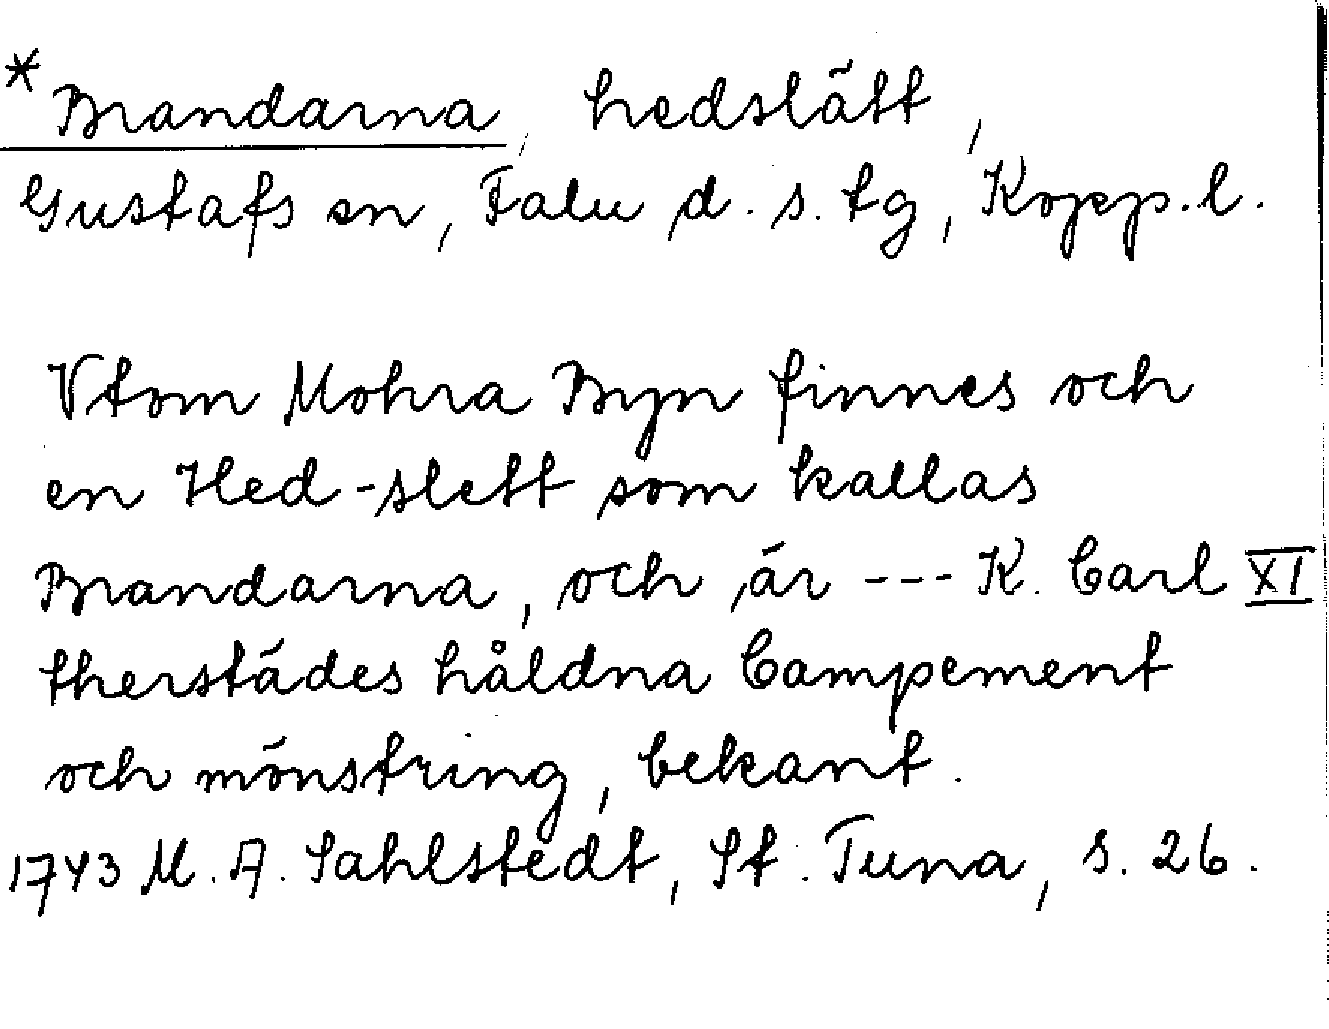 *Brandarna, hedslätt,
Gustafs sn, Falu d. s. tg, Kopp. l.
Vtom Mohra Byn finnes och
en Hed-slett som kallas
Brandarna, och är --- K. Carl XI
therstädes håldna Campement
och mönstring, bekant.
1743 M. A. Sahlstedt, St. Tuna, s. 26.